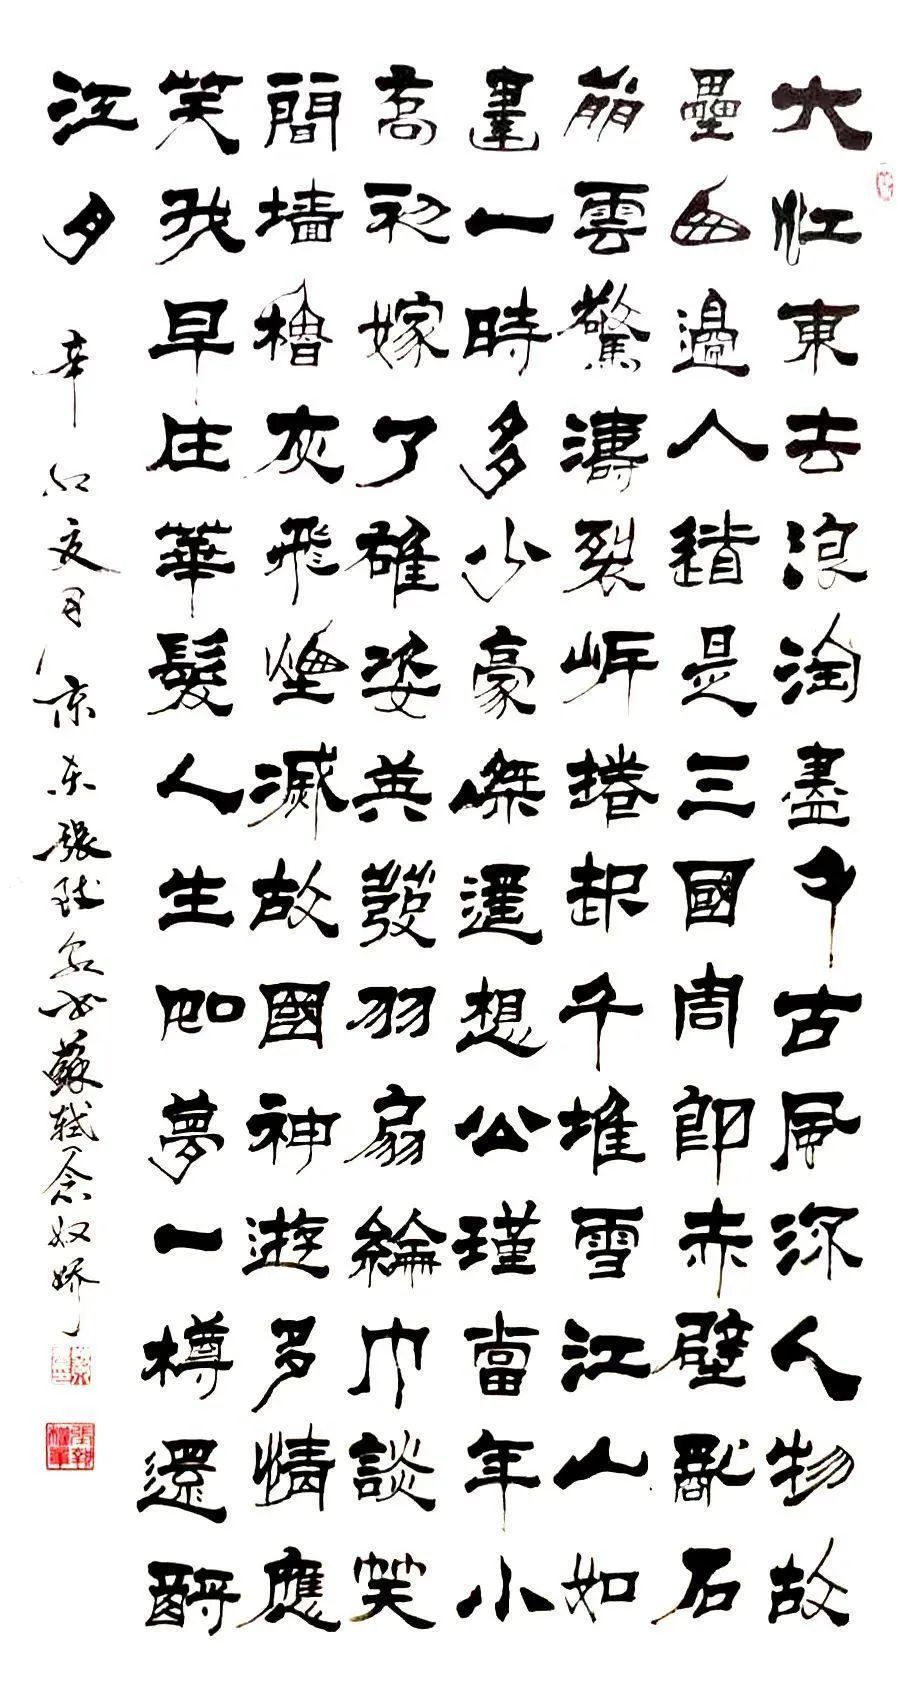 大江東去浪淘盡千古風流人物故
壘西邊人道是三國周郎赤壁亂石
崩雲驚濤裂岸捲起千堆雪江山如
畫一時多少豪傑遥想公瑾當年小
喬初嫁了雄姿英發羽扇綸巾談笑
間墻櫓灰飛煙滅故國神遊多情應
笑我早生華髮人生如夢一樽還酹
江月
辛卯夏月京东張書蘇軾念奴嬌